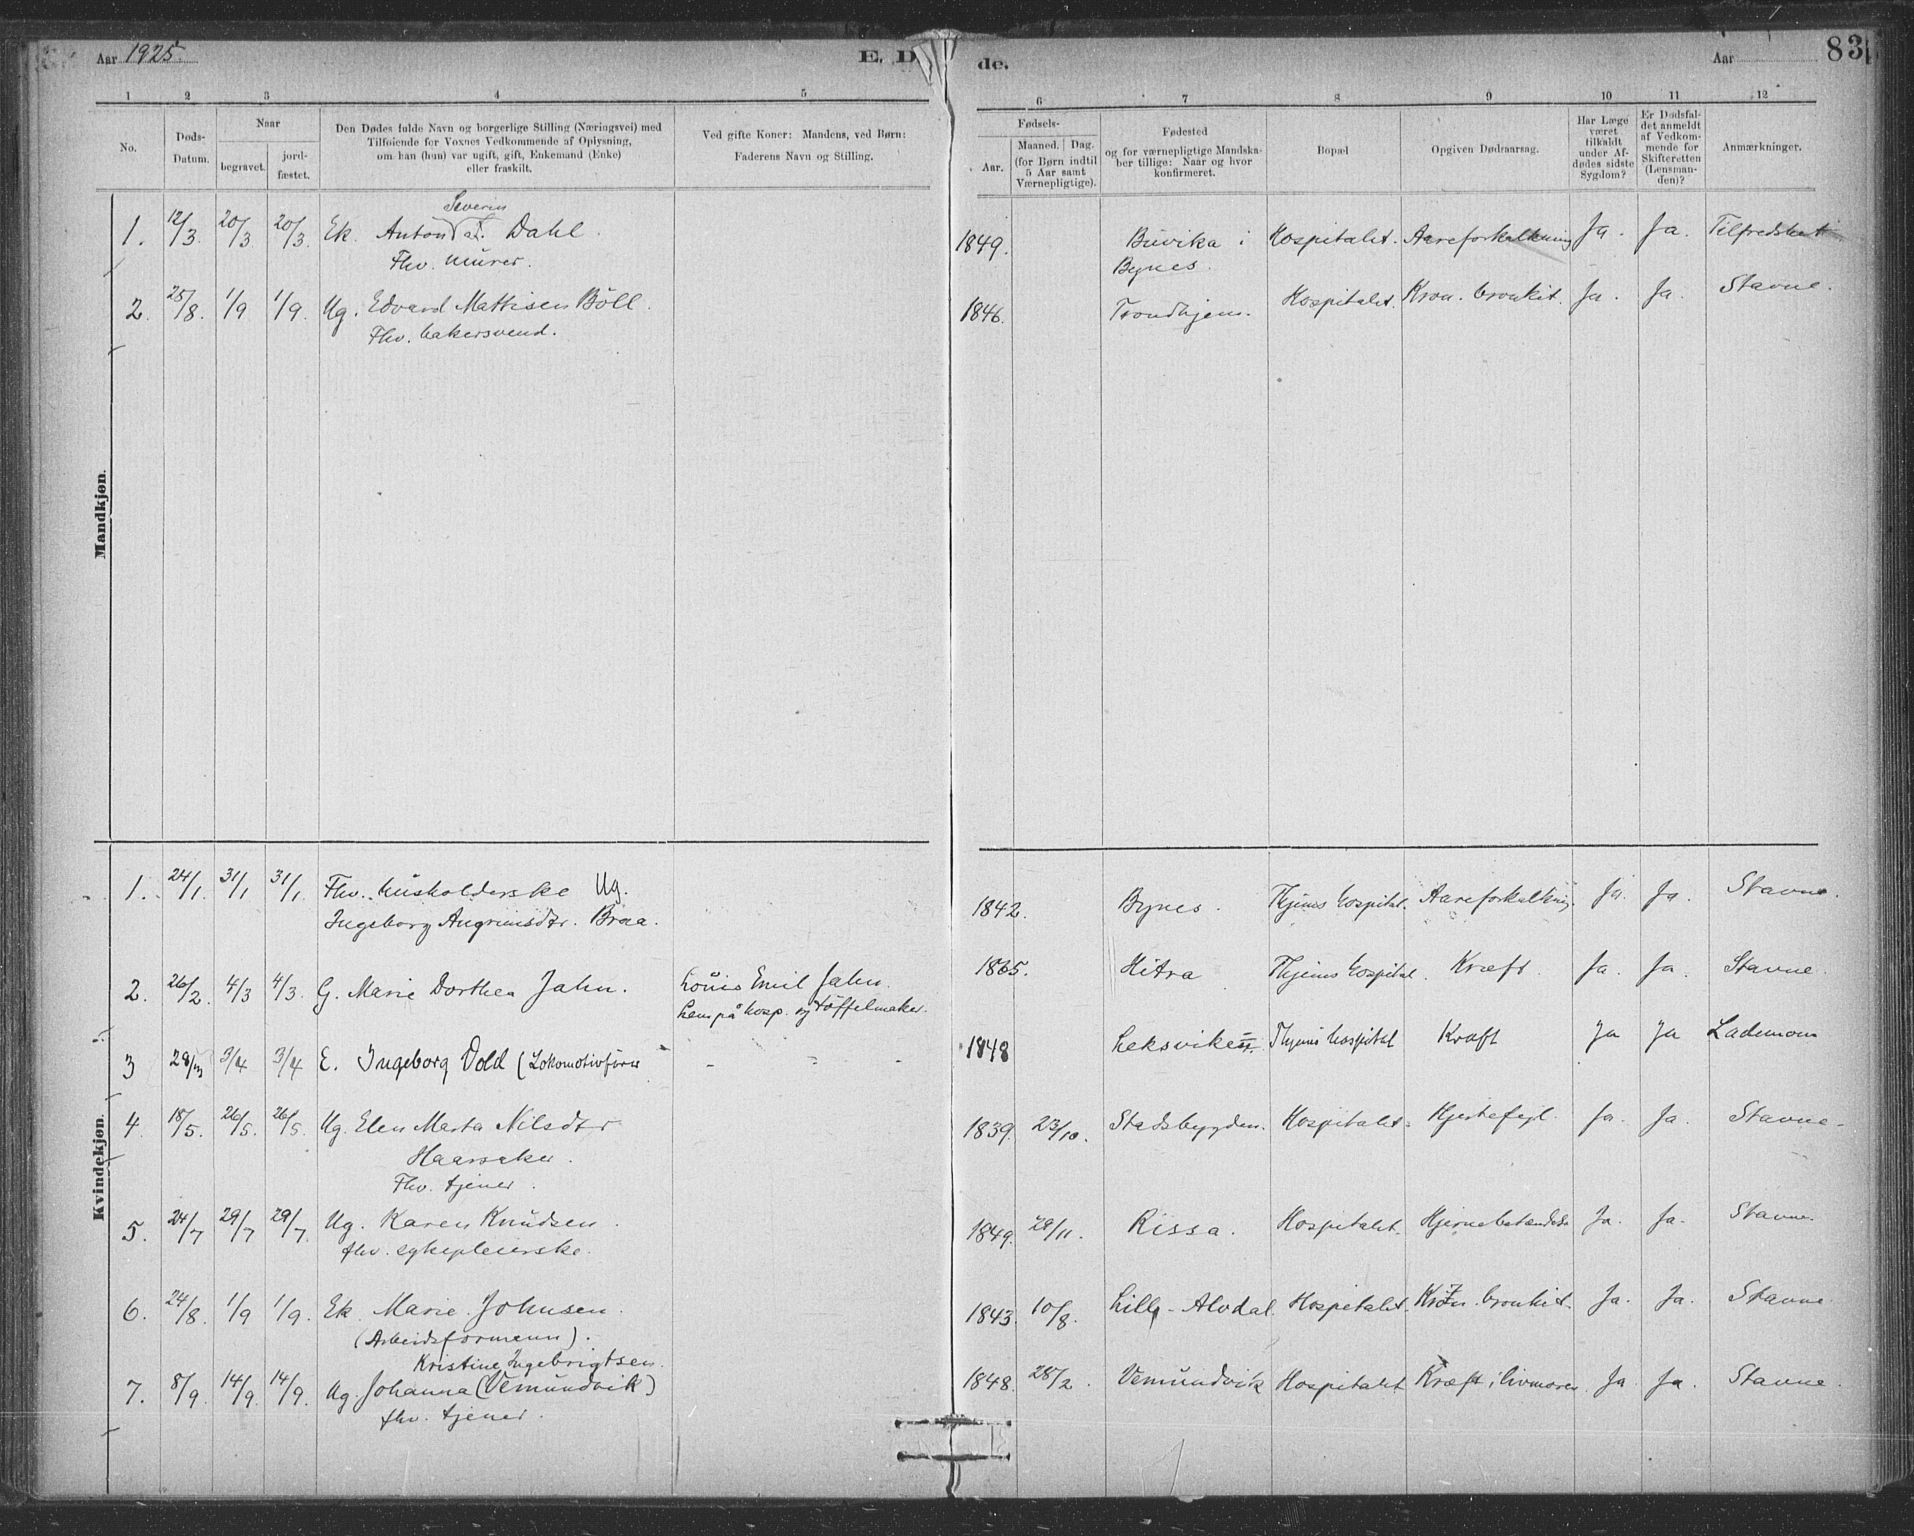 Aar 1925. E. D de. Aar 83
1 2 3 4 5 6 7 8 9 10 11 12
No. Døds-Datum. Naar begravet. jord-fæstet. Den Dødes fulde Navn og borgerlige Stilling (Næringsvei) med Tilføiende for Voxnes Vedkommende af Oplysning, om han (hun) var ugift, gift, Enkemand (Enke) eller fraskilt. Ved gifte Koner: Mandens, ved Børn: Faderens Navn og Stilling. Fødsels- Aar. Maaned. Dag. (for Børn indtil 5 Aar samt Værnepligtige). Fødested og for værnepligtige Mandskaber tillige: Naar og hvor konfirmeret. Bopæl Opgiven Dødsaarsag. Har Læge været tilkaldt under Afdødes sidste Sygdom? Er Dødsfaldet anmeldt af Vedkommende for Skifteretten (Lensmanden)? Anmærkninger.
Mandkjøn.
Severin
1. 12/3. 20/3 20/3. Ek. Anton Dahl. 1849. Buvika i Hospitalet. Aareforkalkning Ja. Ja. Tilfredshet
Fhv. murer. Bynes.
2. 25/8. 1/9 1/9. Ug. Edvard Mattisen Böll. 1846. Trondhjem. Hospitalet. Kron. bronkit. Ja. Ja. Stavne.
Fhv. bakersvend.
Kvindekjøn.
1. 24/1. 31/1 31/1 Fhv. husholderske Ug. 1842. Bynes. Thjems hospital. Aareforkalkning. Ja. Ja. Stavne.
Ingeborg Angrimsdtr. Braa.
2. 26/2. 4/3 4/3. G. Marie Dorthea Jahn. Louis Emil Jahn. 1865. Hitra Thjems hospital. Kræft Ja. Ja. Stavne.
Lem på hosp. og tøffelmaker.
3 28/3 3/4 3/4 E. Ingeborg Dold (Lokomotivfører - - 1848 Leksviken. Thjems Hospital Kræft Ja Ja Lademoen
4. 18/5. 26/5. 26/5. Ug. Elen Marta Nilsdtr 1839. 23/10. Stadsbygden. Hospitalet. Hjertefejl. Ja. Ja. Stavne.
Haarsaker.
Fhv. tjener.
5. 24/7 29/7 29/7 Ug. Karen Knudsen. 1849. 29/11. Rissa. Hospitalet. Hjernebetændelse Ja. Ja. Stavne.
fhv. sykepleierske.
6. 24/8. 1/9 1/9. Ek. Marie Johnsen. 1843. 10/8. Lille-Alvdal Hospitalet. Kron. bronkit. Ja. Ja. Stavne
(Arbeidsformenn).
Kristine Ingebrigtsen.
7. 8/9. 14/9. 14/9. Ug. Johanna (Vemundvik) 1848. 28/2. Vemundvik Hospitalet Kræft i livmoren Ja. Ja. Stavne.
fhv. tjener.